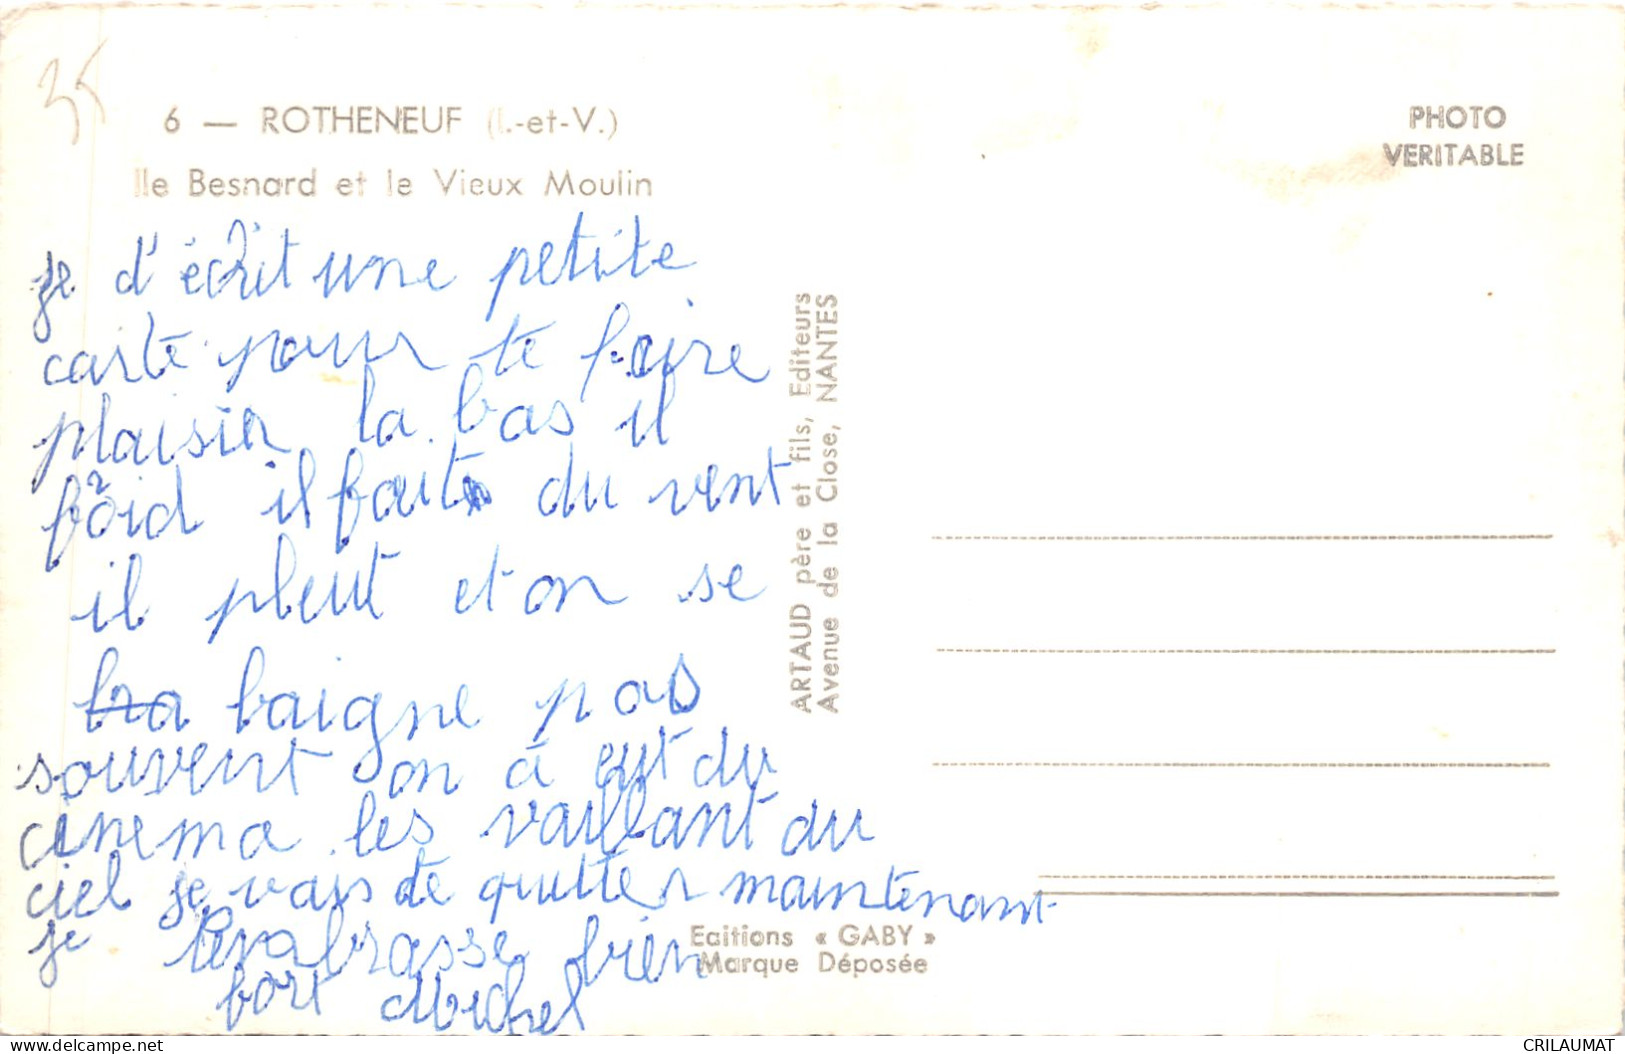 35
6 — ROTHENEUF (I.-et-V.)
Ile Besnard et le Vieux Moulin
PHOTO
VERITABLE
je d'écrit une petite
carte pour te faire
plaisir la bas il
froid il fait du vent
il pleut et on se
bra baigne pas
souvent on à eut du
cinema les vaillant du
ciel je vais te quitter maintenant
je t'embrasse bien
fort Michel
ARTAUD père et fils, Editeurs
Avenue de la Close, NANTES
Editions « GABY »
Marque Déposée
delcampe.net
CRILAUMAT